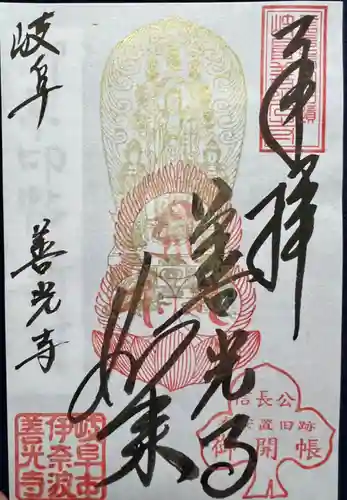 奉拝
善光寺
如来
岐阜
善光寺
信長公
安置旧跡
御開帳
岐阜市
伊奈波
善光寺